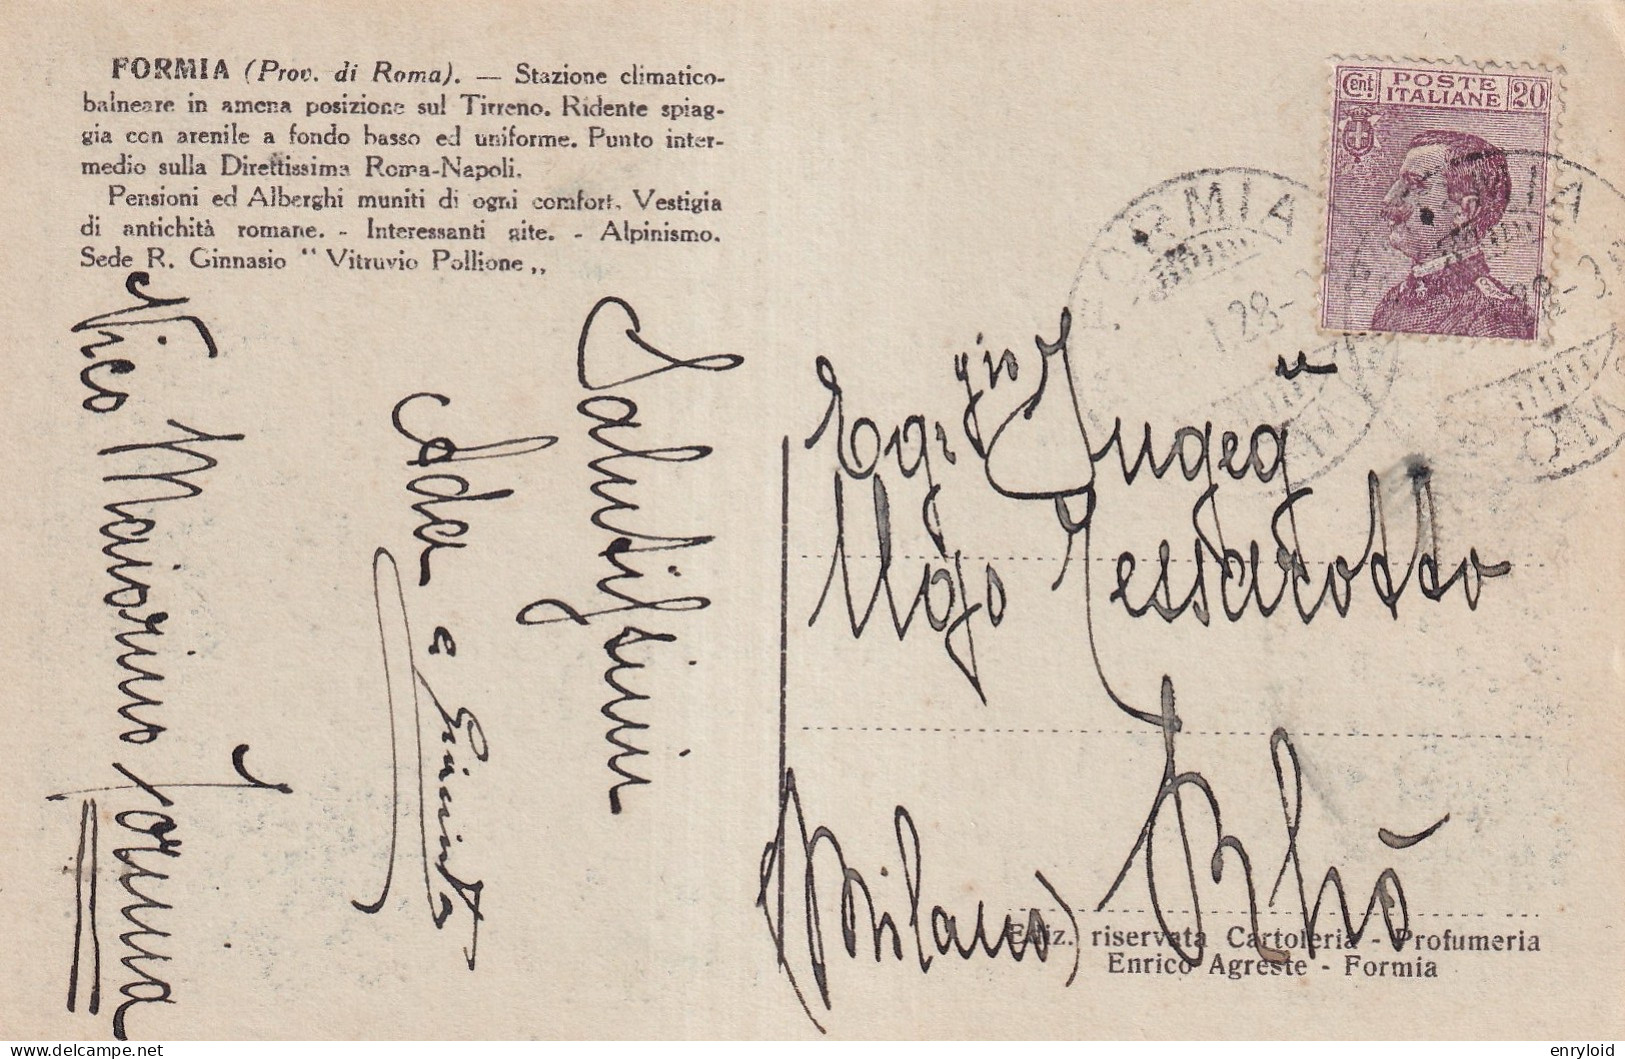 FORMIA (Prov. di Roma). — Stazione climatico-
balneare in amena posizione sul Tirreno. Ridente spiag-
gia con arenile a fondo basso ed uniforme. Punto inter-
medio sulla Direttissima Roma-Napoli.
Pensioni ed Alberghi muniti di ogni comfort. Vestigia
di antichità romane. - Interessanti gite. - Alpinismo.
Sede R. Ginnasio “ Vitruvio Pollione „
Cent. POSTE 20
ITALIANE
FORMIA
Salutissimi
Ada e Giacinto
Nico Maiorino Formia
Egregio Ingeg
Ugo Tessarotto
(Milano) Rhò
Ediz. riservata Cartoleria - Profumeria
Enrico Agreste - Formia
enryloid
delcampe.net